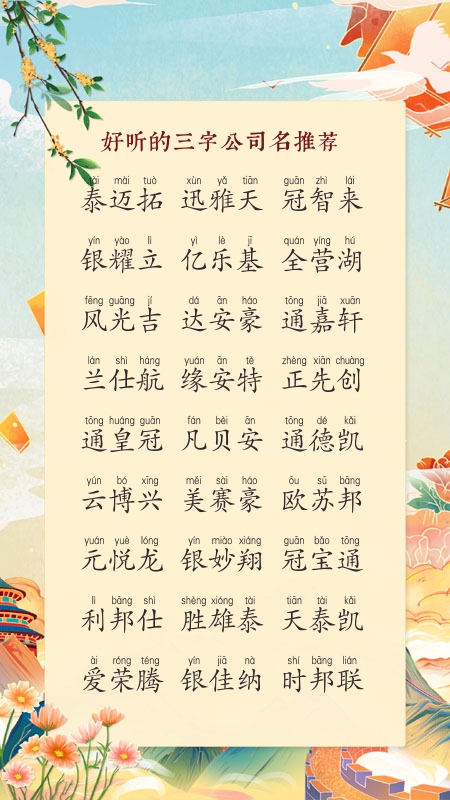 好听的三字公司名推荐
tài mài tuò xùn yǎ tiān guān zhì lái
泰迈拓 迅雅天 冠智来
yín yào lì yì lè jī quán yíng hú
银耀立 亿乐基 全营湖
fēng guāng jí dá ān háo tōng jiā xuān
风光吉 达安豪 通嘉轩
lán shì háng yuán ān tè zhèng xiān chuàng
兰仕航 缘安特 正先创
tōng huáng guān fán bèi ān tōng dé kǎi
通皇冠 凡贝安 通德凯
yún bó xīng měi sài háo ōu sū bāng
云博兴 美赛豪 欧苏邦
yuán yuè lóng yín miào xiáng guān bǎo tōng
元悦龙 银妙翔 冠宝通
lì bāng shì shèng xióng tài tiān tài kǎi
利邦仕 胜雄泰 天泰凯
ài róng téng yín jiā nà shí bāng lián
爱荣腾 银佳纳 时邦联